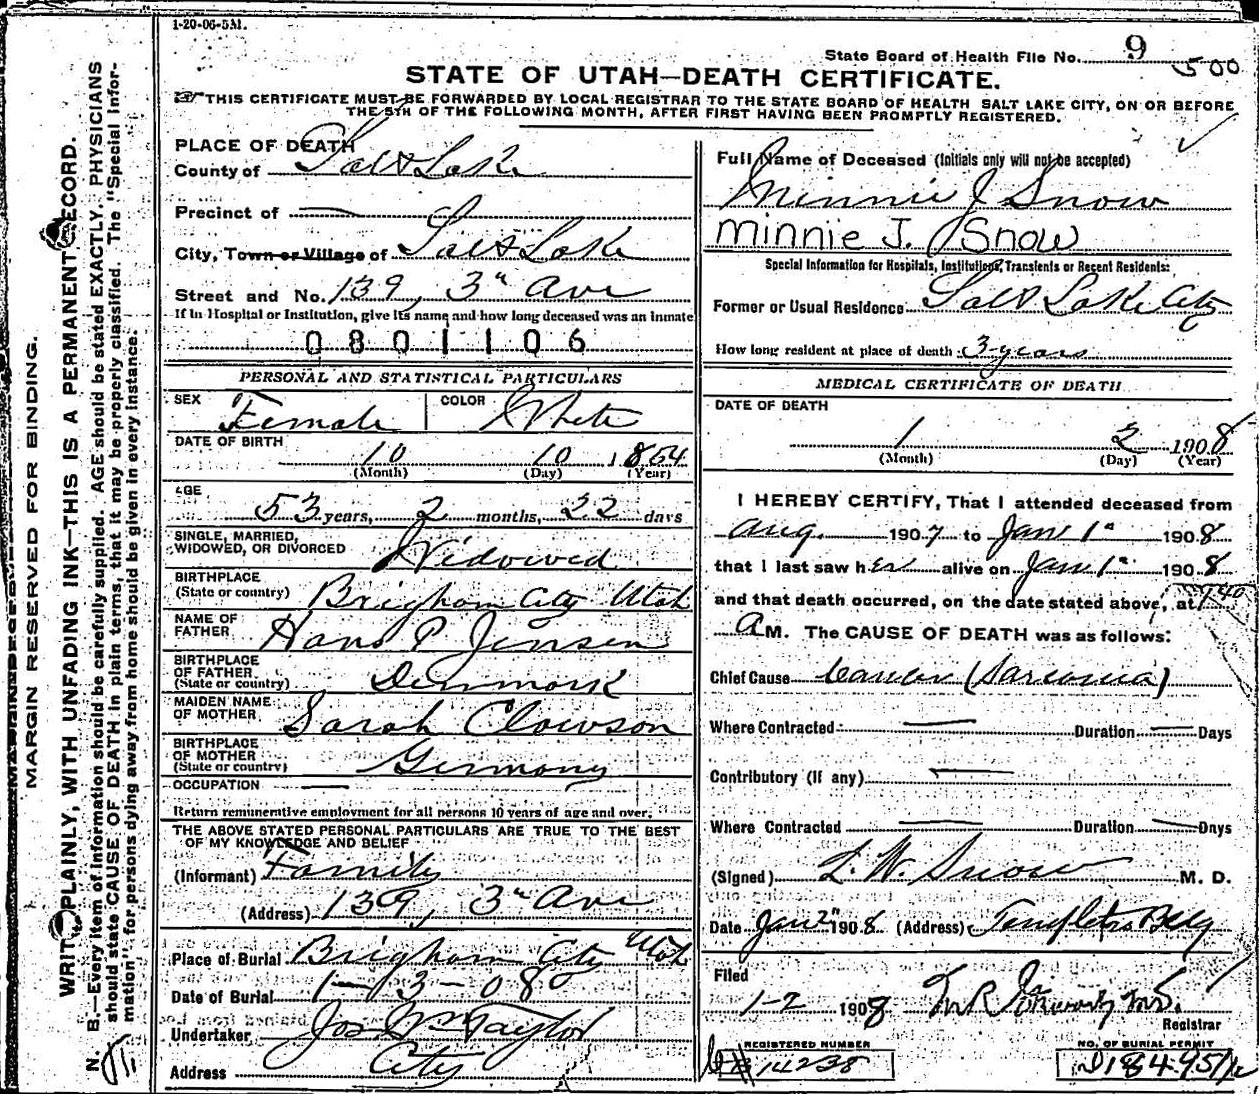 1-20-06-5M.
State Board of Health File No. 9
500
STATE OF UTAH—DEATH CERTIFICATE.
THIS CERTIFICATE MUST BE FORWARDED BY LOCAL REGISTRAR TO THE STATE BOARD OF HEALTH SALT LAKE CITY, ON OR BEFORE
THE 5TH OF THE FOLLOWING MONTH, AFTER FIRST HAVING BEEN PROMPTLY REGISTERED.
MARGIN RESERVED FOR BINDING.
WRITE PLAINLY, WITH UNFADING INK—THIS IS A PERMANENT RECORD.
N. B.—Every item of information should be carefully supplied. AGE should be stated EXACTLY. PHYSICIANS
should state CAUSE OF DEATH in plain terms, that it may be properly classified. The "Special Infor-
mation" for persons dying away from home should be given in every instance.
PLACE OF DEATH
County of Salt Lake
Precinct of —
City, Town or Village of Salt Lake
Street and No. 139, 3" Ave
If in Hospital or Institution, give its name and how long deceased was an inmate
0801106
PERSONAL AND STATISTICAL PARTICULARS
SEX Female COLOR White
DATE OF BIRTH
10 10 1854
(Month) (Day) (Year)
AGE
53 years, 2 months, 22 days
SINGLE, MARRIED,
WIDOWED, OR DIVORCED Widowed
BIRTHPLACE
(State or country) Brigham City Utah
NAME OF
FATHER Hans P. Jensen
BIRTHPLACE
OF FATHER
(State or country) Denmark
MAIDEN NAME
OF MOTHER Sarah Clawson
BIRTHPLACE
OF MOTHER
(State or country) Germany
OCCUPATION —
Return remunerative employment for all persons 10 years of age and over.
THE ABOVE STATED PERSONAL PARTICULARS ARE TRUE TO THE BEST
OF MY KNOWLEDGE AND BELIEF
(Informant) Family
(Address) 139, 3" Ave
Place of Burial Brigham City Utah
Date of Burial 1-3-08
Undertaker Jos Wm Taylor
Address City
Full Name of Deceased (Initials only will not be accepted)
Minnie J Snow
Minnie J. Snow
Special Information for Hospitals, Institutions, Transients or Recent Residents:
Former or Usual Residence Salt Lake City
How long resident at place of death 3 years
MEDICAL CERTIFICATE OF DEATH
DATE OF DEATH
1 2 1908
(Month) (Day) (Year)
I HEREBY CERTIFY, That I attended deceased from
Aug. 1907 to Jan 1" 1908
that I last saw her alive on Jan 1" 1908
and that death occurred, on the date stated above, at 7 40
A M. The CAUSE OF DEATH was as follows:
Chief Cause Cancer (Sarcoma)
Where Contracted — Duration — Days
Contributory (if any) —
Where Contracted — Duration — Days
(Signed) L. W. Snow M. D.
Date Jan 2" 1908 (Address) Templeton Bldg
Filed
1-2 1908
Registrar
REGISTERED NUMBER
14238
NO. OF BURIAL PERMIT